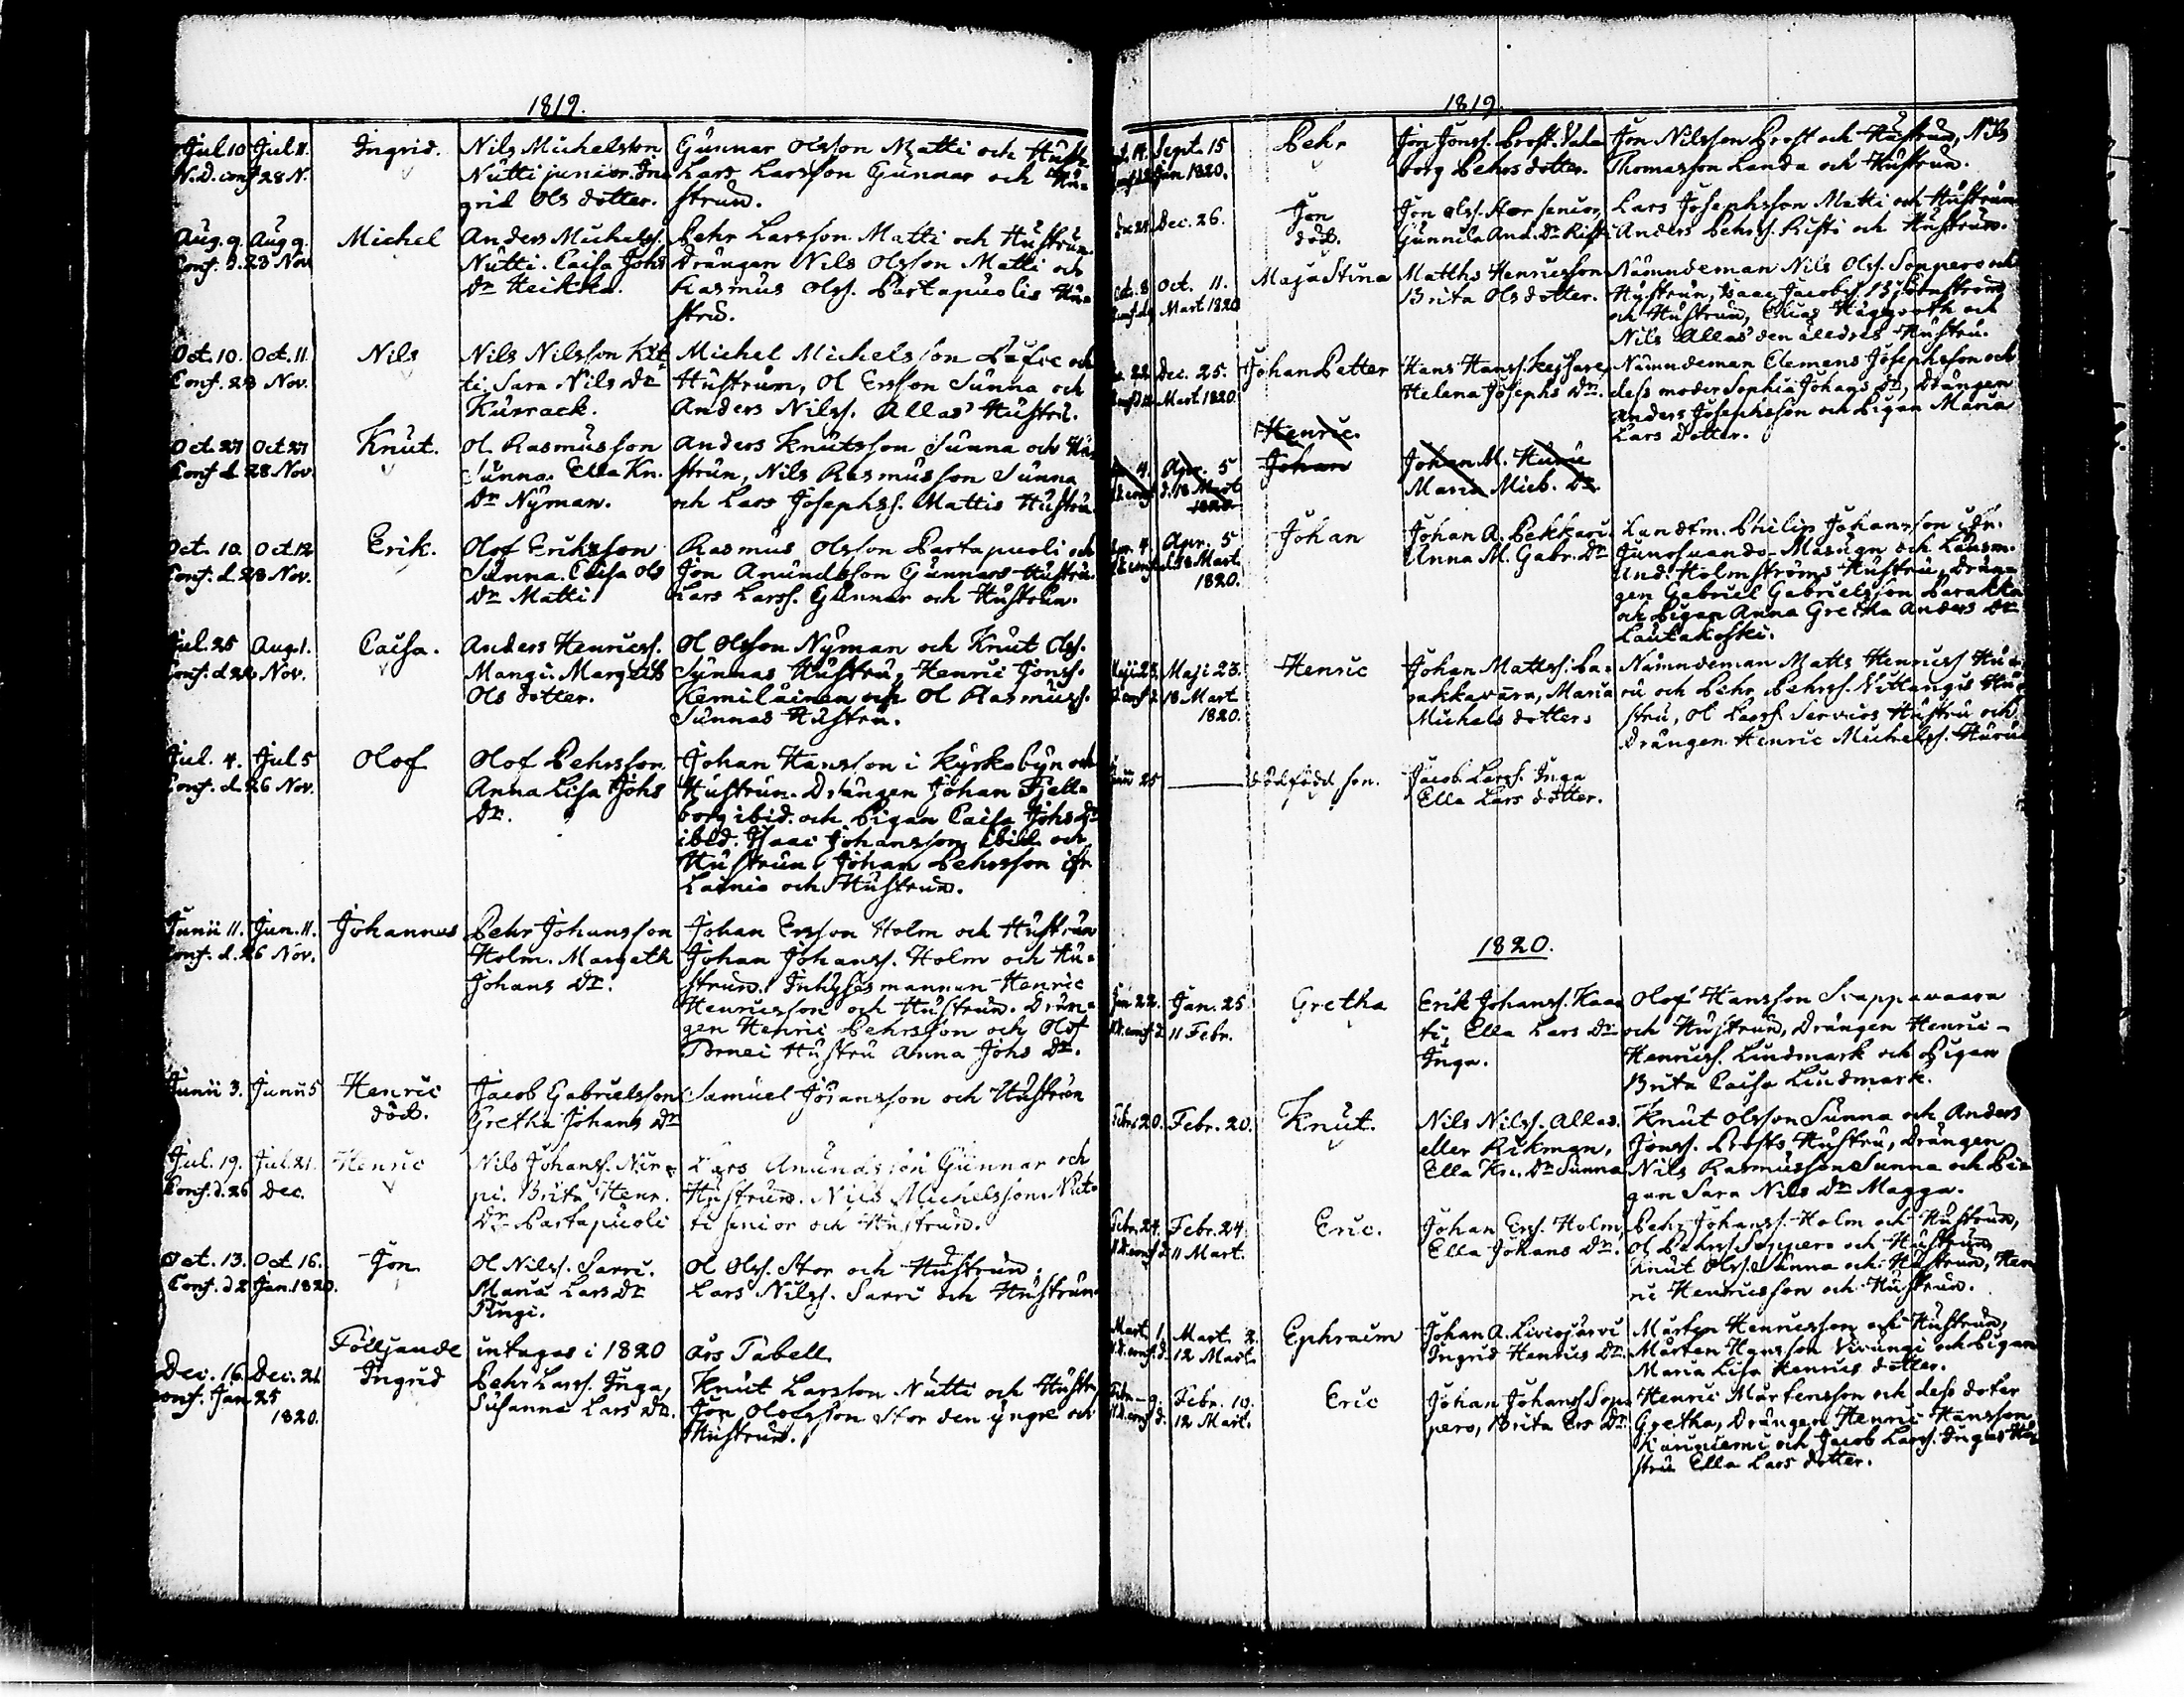 1819.
Jul. 10 Jul 11. Ingrid. Nils Michelsson Gunnar Olsson Matti och Hustr.
N.D. conf 28 N. Nutti junior. In- Lars Larsson Gunnar och Hu-
grid Ols dotter. strun.
Aug. 9. Aug 9. Michel Anders Michelss. Pehr Larsson Matti och Hustrun
Conf. d. 23 Nov Nutti. Caisa Johs Drängen Nils Olsson Matti och
Dr Heikka. Rasmus Olss. Partapuolis Hu-
stru.
Oct. 10. Oct. 11. Nils Nils Nilsson Kit- Michel Michelsson Päfve och
Conf. 28 Nov. ti, Sara Nils Dr Hustrun, Ol Ersson Sunna och
Kurrack. Anders Nilss. Allas' Hustru.
Oct. 27 Oct 27 Knut. Ol Rasmusson Anders Knutsson Sunna och Hu-
Conf d 28 Nov. Sunna. Ella Kn. strun, Nils Rasmusson Sunna
Dr Nyman. och Lars Josephss. Mattis Hustru.
Oct. 10. Oct. 12 Erik. Olof Eriksson Rasmus Olsson Partapuoli och
Conf. d. 28 Nov. Sunna. Caisa Ols Jon Anundsson Gunnars Hustru.
Dr Matti. Lars Larss. Gunnar och Hustrun.
Jul. 25 Aug 1. Caisa. Anders Henricss. Ol Olsson Nyman och Knut Olss.
Conf. d. 22 Nov. Mangi. Margeth Sunnas Hustru, Henric Jonss.
Ols dotter. Kemiläinen och Ol Rasmuss.
Sunnas Hustru.
Jul. 4. Jul 5 Olof Olof Pehrsson Johan Hansson i Kyrkobyn och
Conf. d. 26 Nov. Anna Lisa Johs Hustrun. Drängen Johan Fjell-
Dr. borg ibid. och Pigan Caisa Johs Dr
ibid. Isaac Johansson ibid. och
Hustrun, Johan Pehrsson ifr.
Lainio och Hustrun.
Junii 11. Jun. 11. Johannes Pehr Johansson Johan Ersson Holm och Hustrun
Conf. d. 26 Nov. Holm. Margeth Johan Johanss. Holm och Hu-
Johans Dr. strun. Inhysesmannen Henric
Henricsson och Hustrun. Drän-
gen Henric Pehrsson och Olof
Tornei Hustru Anna Johs Dr.
Junii 3. Junii 5 Henric Jacob Gabrielsson Samuel Johansson och Hustrun
död. Gretha Johans Dr
Jul. 19. Jul. 21. Henric Nils Johanss. Nir- Lars Anundsson Gunnar och
Conf. d. 26 Dec. pi. Brita Henr. Hustrun. Nils Michelsson Nut-
Dr Partapuoli ti senior och Hustrun.
Oct. 13. Oct. 16. Jon Ol Nilss. Sarri. Ol Olss. Stor och Hustrun.
Conf. d 2 Jan. 1820. Maria Lars Dr Lars Nilss. Sarri och Hustrun.
Pingi.
Följande intages i 1820 års Tabell
Dec. 16. Dec. 21. Ingrid Pehr Larss. Inga, Knut Larsson Nutti och Hustr.
conf. Jan 25 Susanna Lars Dr. Jon Olofsson Stor den yngre och
1820. Hustrun.
1819.
Sept. 15 Pehr Jon Jonss. Prost. Vala Jon Nilsson Prost och Hustrun, Nils
Jan 1820. borg Pehrs dotter. Thomasson Landa och Hustrun.
Dec. 26. Jon Jon Olss. Stor senior, Lars Josephsson Matti och Hustrun
död. Gunnila And. Dr Risti Anders Pehrss. Risti och Hustrun.
Oct. 8 Oct. 11. Maja Stina Matths Henricsson Nämndeman Nils Olss. Soppero och
Mart 1820 Brita Ols dotter. Hustrun, Isaac Jacobss. Björnström
och Hustrun, Elias Häggroth och
Nils Allas' den äldres Hustru.
Dec. 25. Johan Petter Hans Hanss. Kejsare Nämndeman Clemens Josephsson och
Mart. 1820 Helena Josephs Dr. dess moder Sophia Johans Dr, Drängen
Anders Josephsson och Pigan Maria
Lars dotter.
Henric.
Apr. 5 Johan Johan M. Huru
d. 18 Mart Maria Mich. Dr
1820
Apr. 4 Apr. 5 Johan Johan A. Pekkari Landtm. Philip Johansson ifr.
d. 18 Mart Anna M. Gabr. Dr Junosuando-Masugn och Länsm.
1820. And. Holmströms Hustru, Drän-
gen Gabriel Gabrielsson Parakka
och Pigan Anna Gretha Anders Dr
Lautakoski.
Maji 23. Maji 23. Henric Johan Mattss. Pa- Nämndeman Matts Henricss Hu-
18 Mart rakkavara, Maria ru och Pehr Pehrss. Vittangis Hu-
1820. Michels dotter. stru, Ol Larss. Servios Hustru och
Drängen Henric Michelss. Huru
25 dödfödd son. Jacob Larss. Inga
Ella Lars dotter.
1820.
Jan 22. Jan. 25. Gretha Erik Johanss. Kaa- Olof Hansson Svappavaara
N.D. conf d. 11 Febr. ti, Ella Lars Dr och Hustrun, Drängen Henric
Inga. Henricss. Lindmark och Pigan
Brita Caisa Lindmark.
Febr. 20. Febr. 20. Knut. Nils Nilss. Allas. Knut Olsson Sunna och Anders
eller Rikman, Jonss. Prosts Hustru, Drängen
Ella Kn. Dr Sunna Nils Rasmusson Sunna och Pi-
gan Sara Nils Dr Magga.
Febr. 24. Febr. 24. Eric. Johan Erss. Holm, Pehr Johanss. Holm och Hustrun,
N.D. conf d 11 Mart. Ella Johans Dr. Ol Pehrss. Soppero och Hustrun
Knut Olss. Sunna och Hustrun, Hen
ric Henricsson och Hustrun.
Mart. 1. Mart. 2. Ephraim Johan A. Liviojärvi Mårten Henricsson och Hustrun,
N.D. conf. d. 12 Mart. Ingrid Henrics Dr. Mårten Hansson Vivungi och Pigan
Maria Lisa Henrics dotter.
Febr. 9. Febr. 10. Eric Johan Johanss Sop- Henric Mårtensson och dess doter
N.D. conf d. 12 Mart. pero, Brita Ers Dr. Gretha, Drängen Henric Hansson
Kauniemi och Jacob Larss. Ingas Hu
stru Ella Lars dotter.